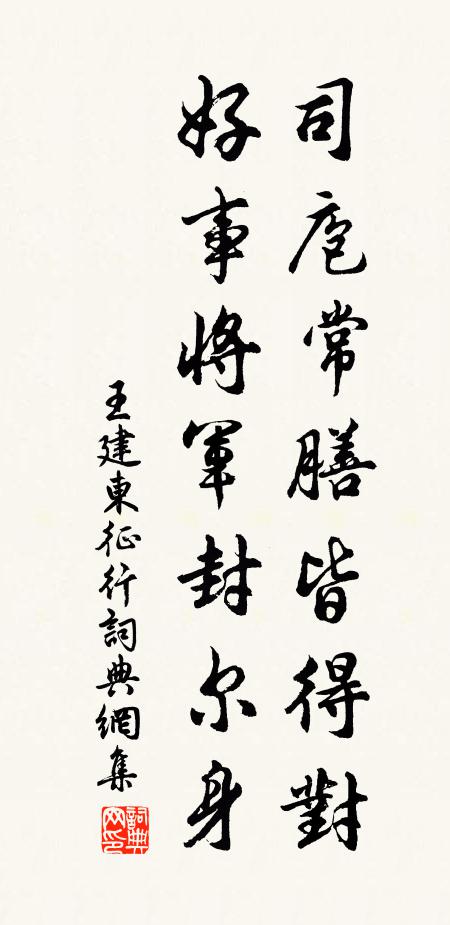 司庖常膳皆得對
好事將軍封尔身
王建東征行詞典網集
詞典网印